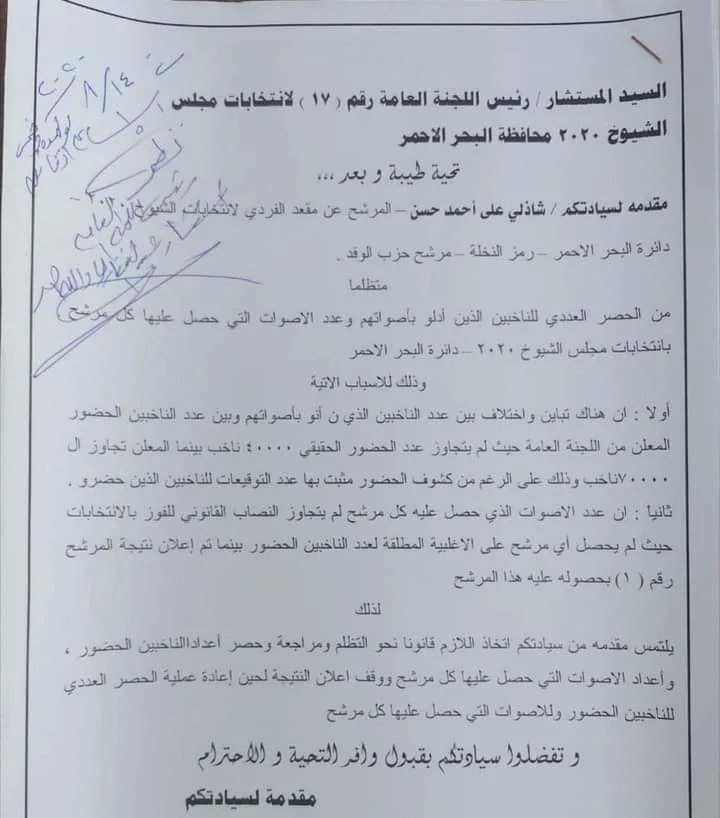 السيد المستشار / رئيس اللجنة العامة رقم ( ١٧ ) لانتخابات مجلس
الشيوخ ٢٠٢٠ محافظة البحر الاحمر
تحية طيبة و بعد ,,,
مقدمه لسيادتكم / شاذلي على أحمد حسن – المرشح عن مقعد الفردي لانتخابات الشيوخ
دائرة البحر الاحمر – رمز النخلة – مرشح حزب الوفد .
متظلما
من الحصر العددي للناخبين الذين أدلو بأصواتهم وعدد الاصوات التي حصل عليها كل مرشح
بانتخابات مجلس الشيوخ ٢٠٢٠ – دائرة البحر الاحمر
وذلك للاسباب الاتية
أولا : ان هناك تباين واختلاف بين عدد الناخبين الذي ن أتو بأصواتهم وبين عدد الناخبين الحضور
المعلن من اللجنة العامة حيث لم يتجاوز عدد الحضور الحقيقي ٤٠٠٠٠ ناخب بينما المعلن تجاوز ال
٧٠٠٠٠ناخب وذلك على الرغم من كشوف الحضور مثبت بها عدد التوقيعات للناخبين الذين حضرو .
ثانيا : ان عدد الاصوات الذي حصل عليه كل مرشح لم يتجاوز النصاب القانوني للفوز بالانتخابات
حيث لم يحصل أي مرشح على الاغلبية المطلقة لعدد الناخبين الحضور بينما تم إعلان نتيجة المرشح
رقم ( ١ ) بحصوله عليه هذا المرشح
لذلك
يلتمس مقدمه من سيادتكم اتخاذ اللازم قانونا نحو التظلم ومراجعة وحصر أعداداالناخبين الحضور ،
وأعداد الاصوات التي حصل عليها كل مرشح ووقف اعلان النتيجة لحين إعادة عملية الحصر العددي
للناخبين الحضور وللاصوات التي حصل عليها كل مرشح
و تفضلوا سيادتكم بقبول وافر التحية و الاحترام
مقدمة لسيادتكم